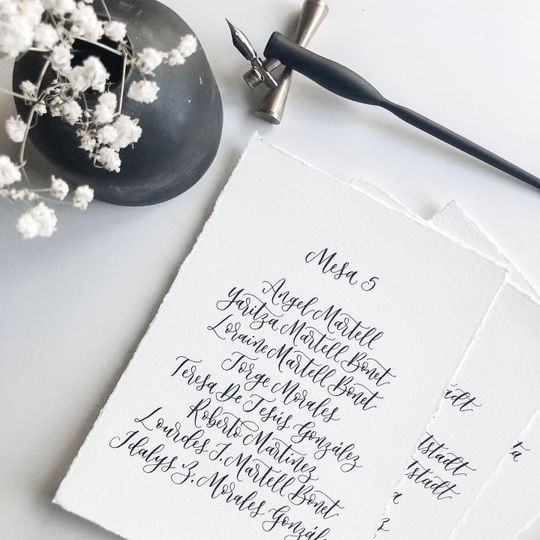 Mesa 5
Angel Martell
Yaritza Martell Bonet
Loraine Martell Bonet
Jorge Morales
Teresa De Jesús González
Roberto Martínez
Lourdes J. Martell Bonet
Idalys Z. Morales Gonzál